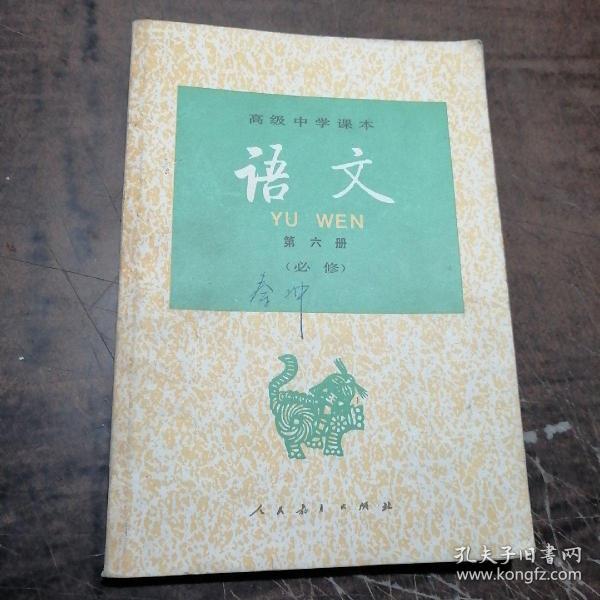 高级中学课本
语文
YU WEN
第六册
(必修)
秦坤
人民教育出版社
孔夫子旧书网
www.kongfz.com